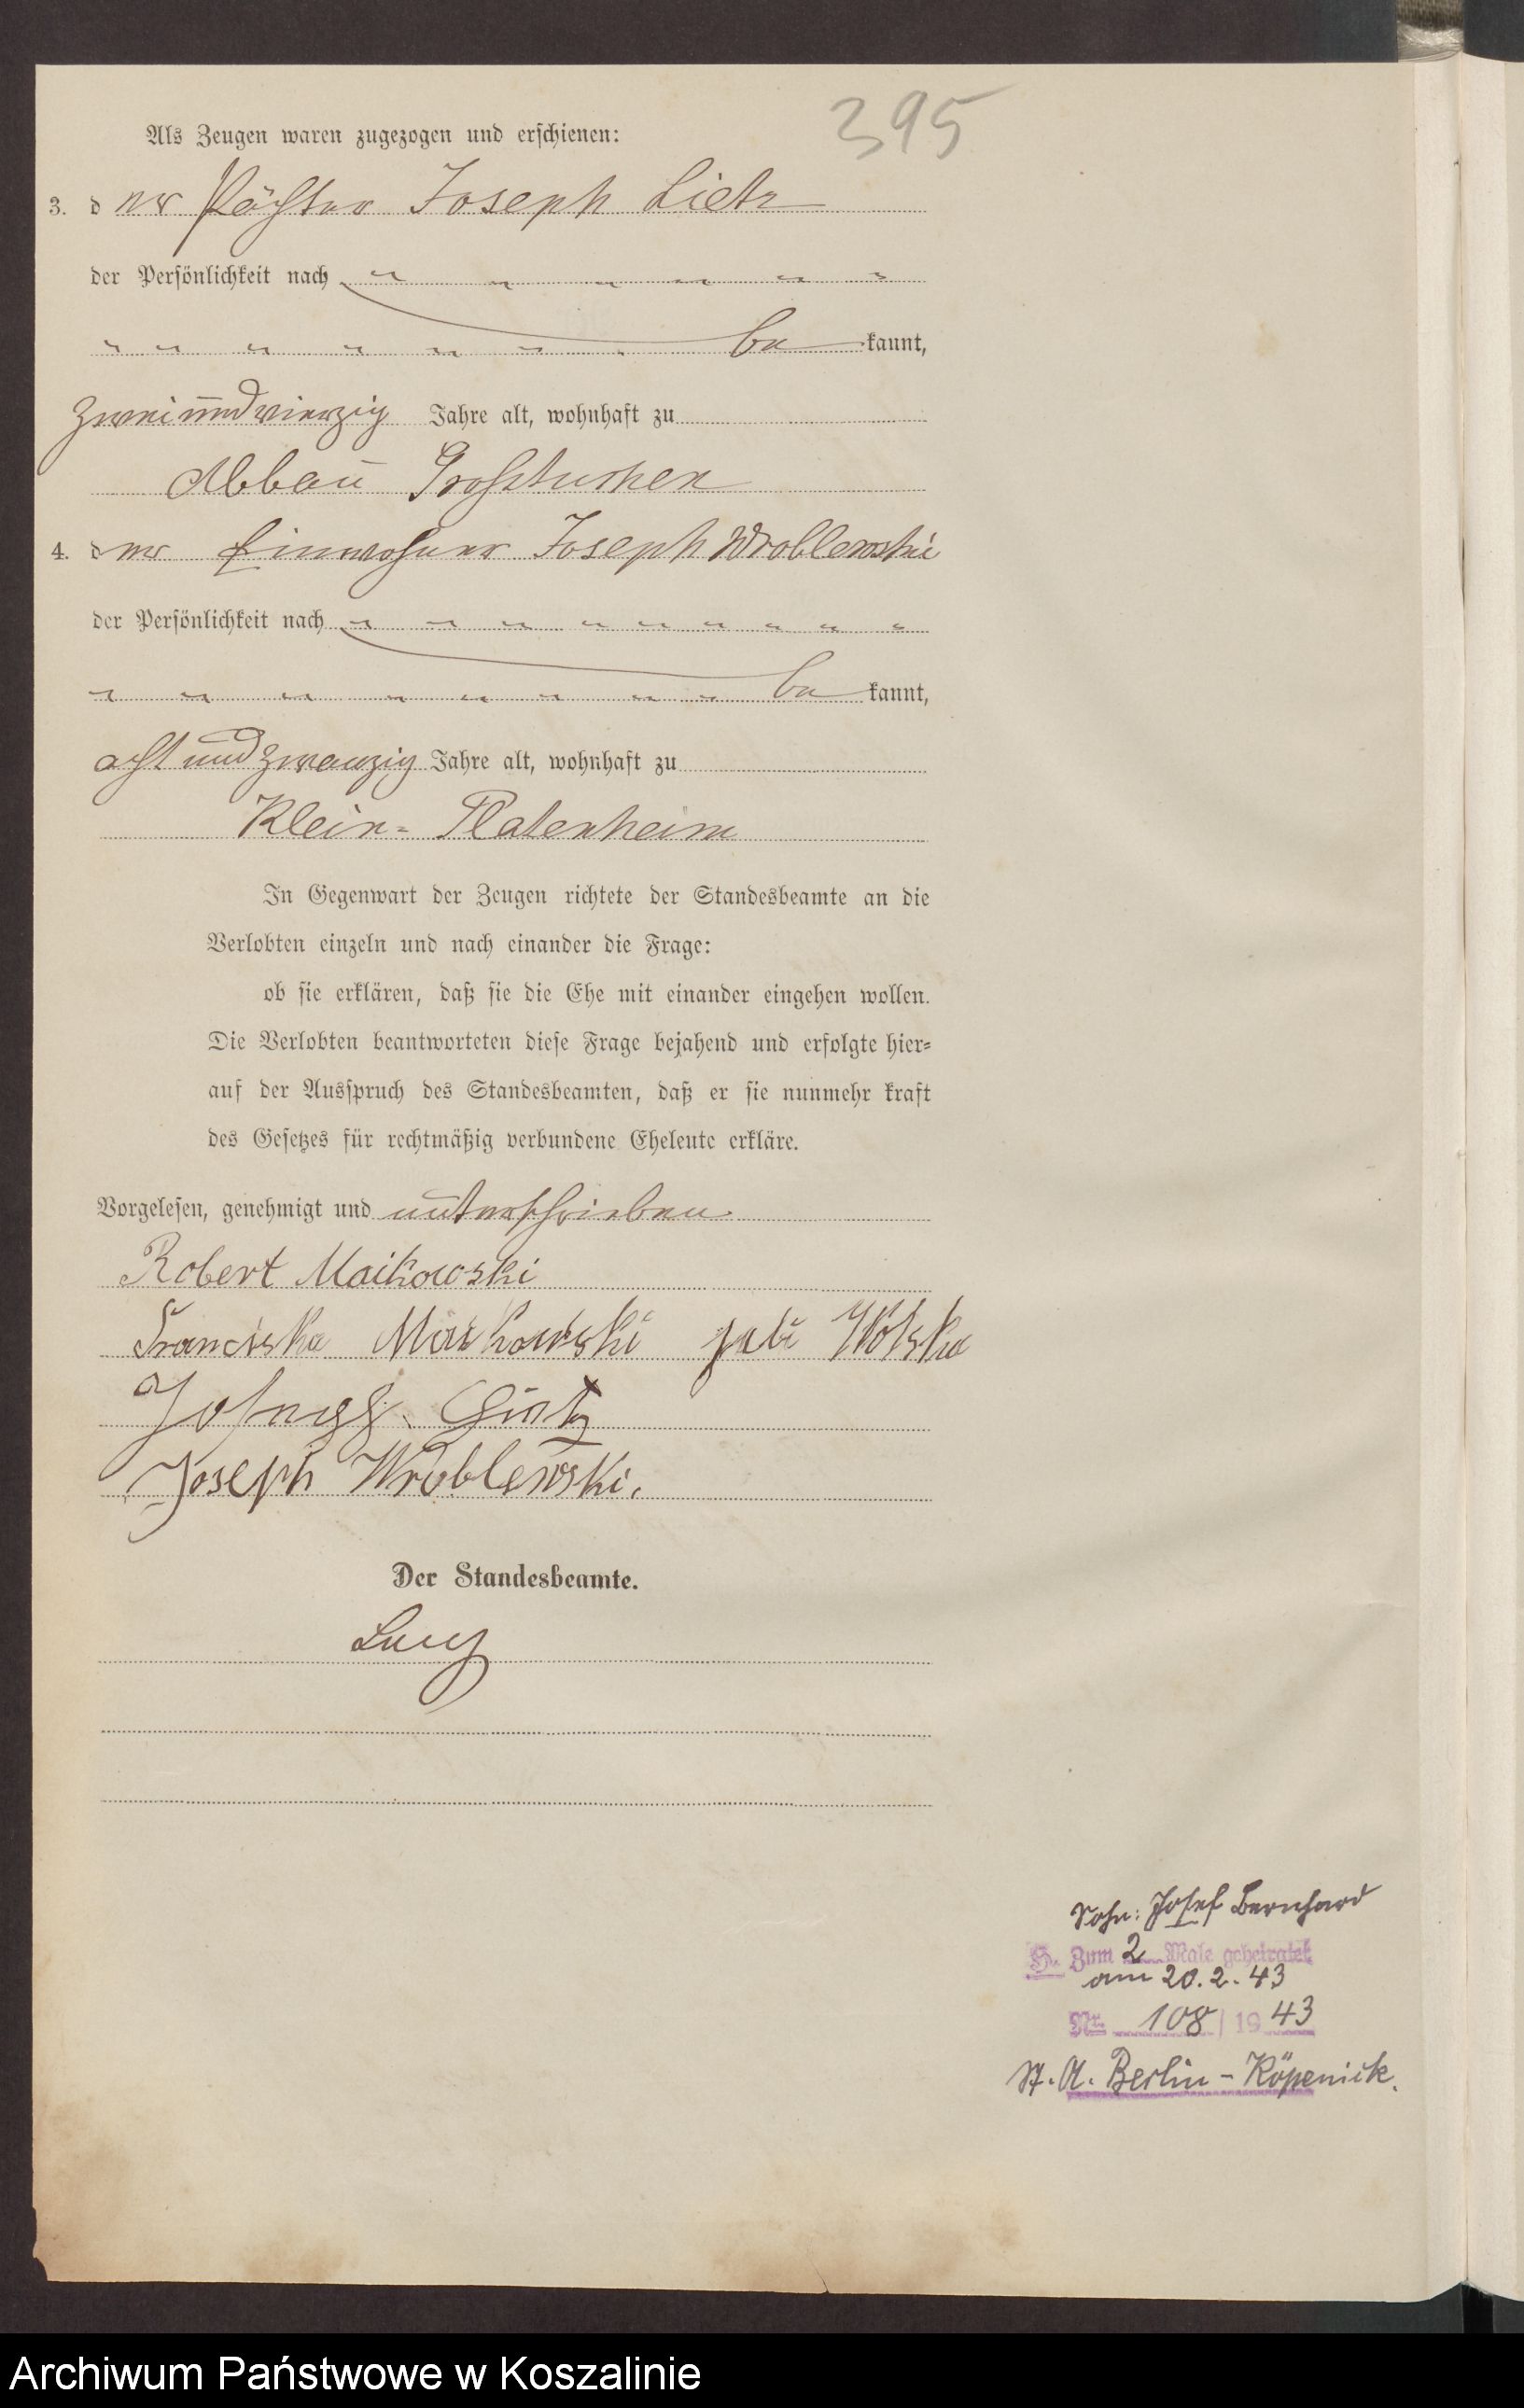 395
Als Zeugen waren zugezogen und erschienen:
3. der Pächter Joseph Lietz
der Persönlichkeit nach
bekannt,
zweiundvierzig Jahre alt, wohnhaft zu
Abbau Großtuchen
4. der Einwohner Joseph Wroblewski
der Persönlichkeit nach
bekannt,
acht und zwanzig Jahre alt, wohnhaft zu
Klein-Platenheim
In Gegenwart der Zeugen richtete der Standesbeamte an die
Verlobten einzeln und nach einander die Frage:
ob sie erklären, daß sie die Ehe mit einander eingehen wollen.
Die Verlobten beantworteten diese Frage bejahend und erfolgte hier-
auf der Ausspruch des Standesbeamten, daß er sie nunmehr kraft
des Gesetzes für rechtmäßig verbundene Eheleute erkläre.
Vorgelesen, genehmigt und unterschrieben
Robert Maikowski
Franciska Maikowski geb
Joseph Wroblewski.
Der Standesbeamte.
Sohn: Josef Bernhard
H. Zum 2 Male geheiratet
am 20.2.43
Nr. 108/1943
St. A. Berlin-Köpenick.
Archiwum Państwowe w Koszalinie